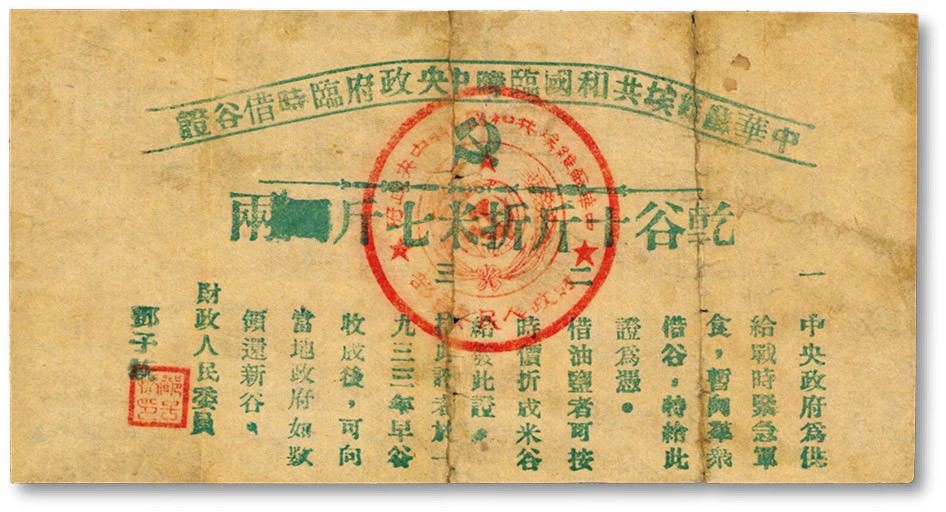 中華蘇維埃共和國臨時中央政府臨時借谷證
乾谷十斤折米七斤兩
一
中央政府為供
給戰時緊急軍
食，暫向羣衆
借谷，特給此
證為憑。
二
借油鹽者可按
時價折成米谷
給發此證。
三
持此證者於一
九三三年早谷
收成後，可向
當地政府如數
領還新谷。
財政人民委員
鄧子恢